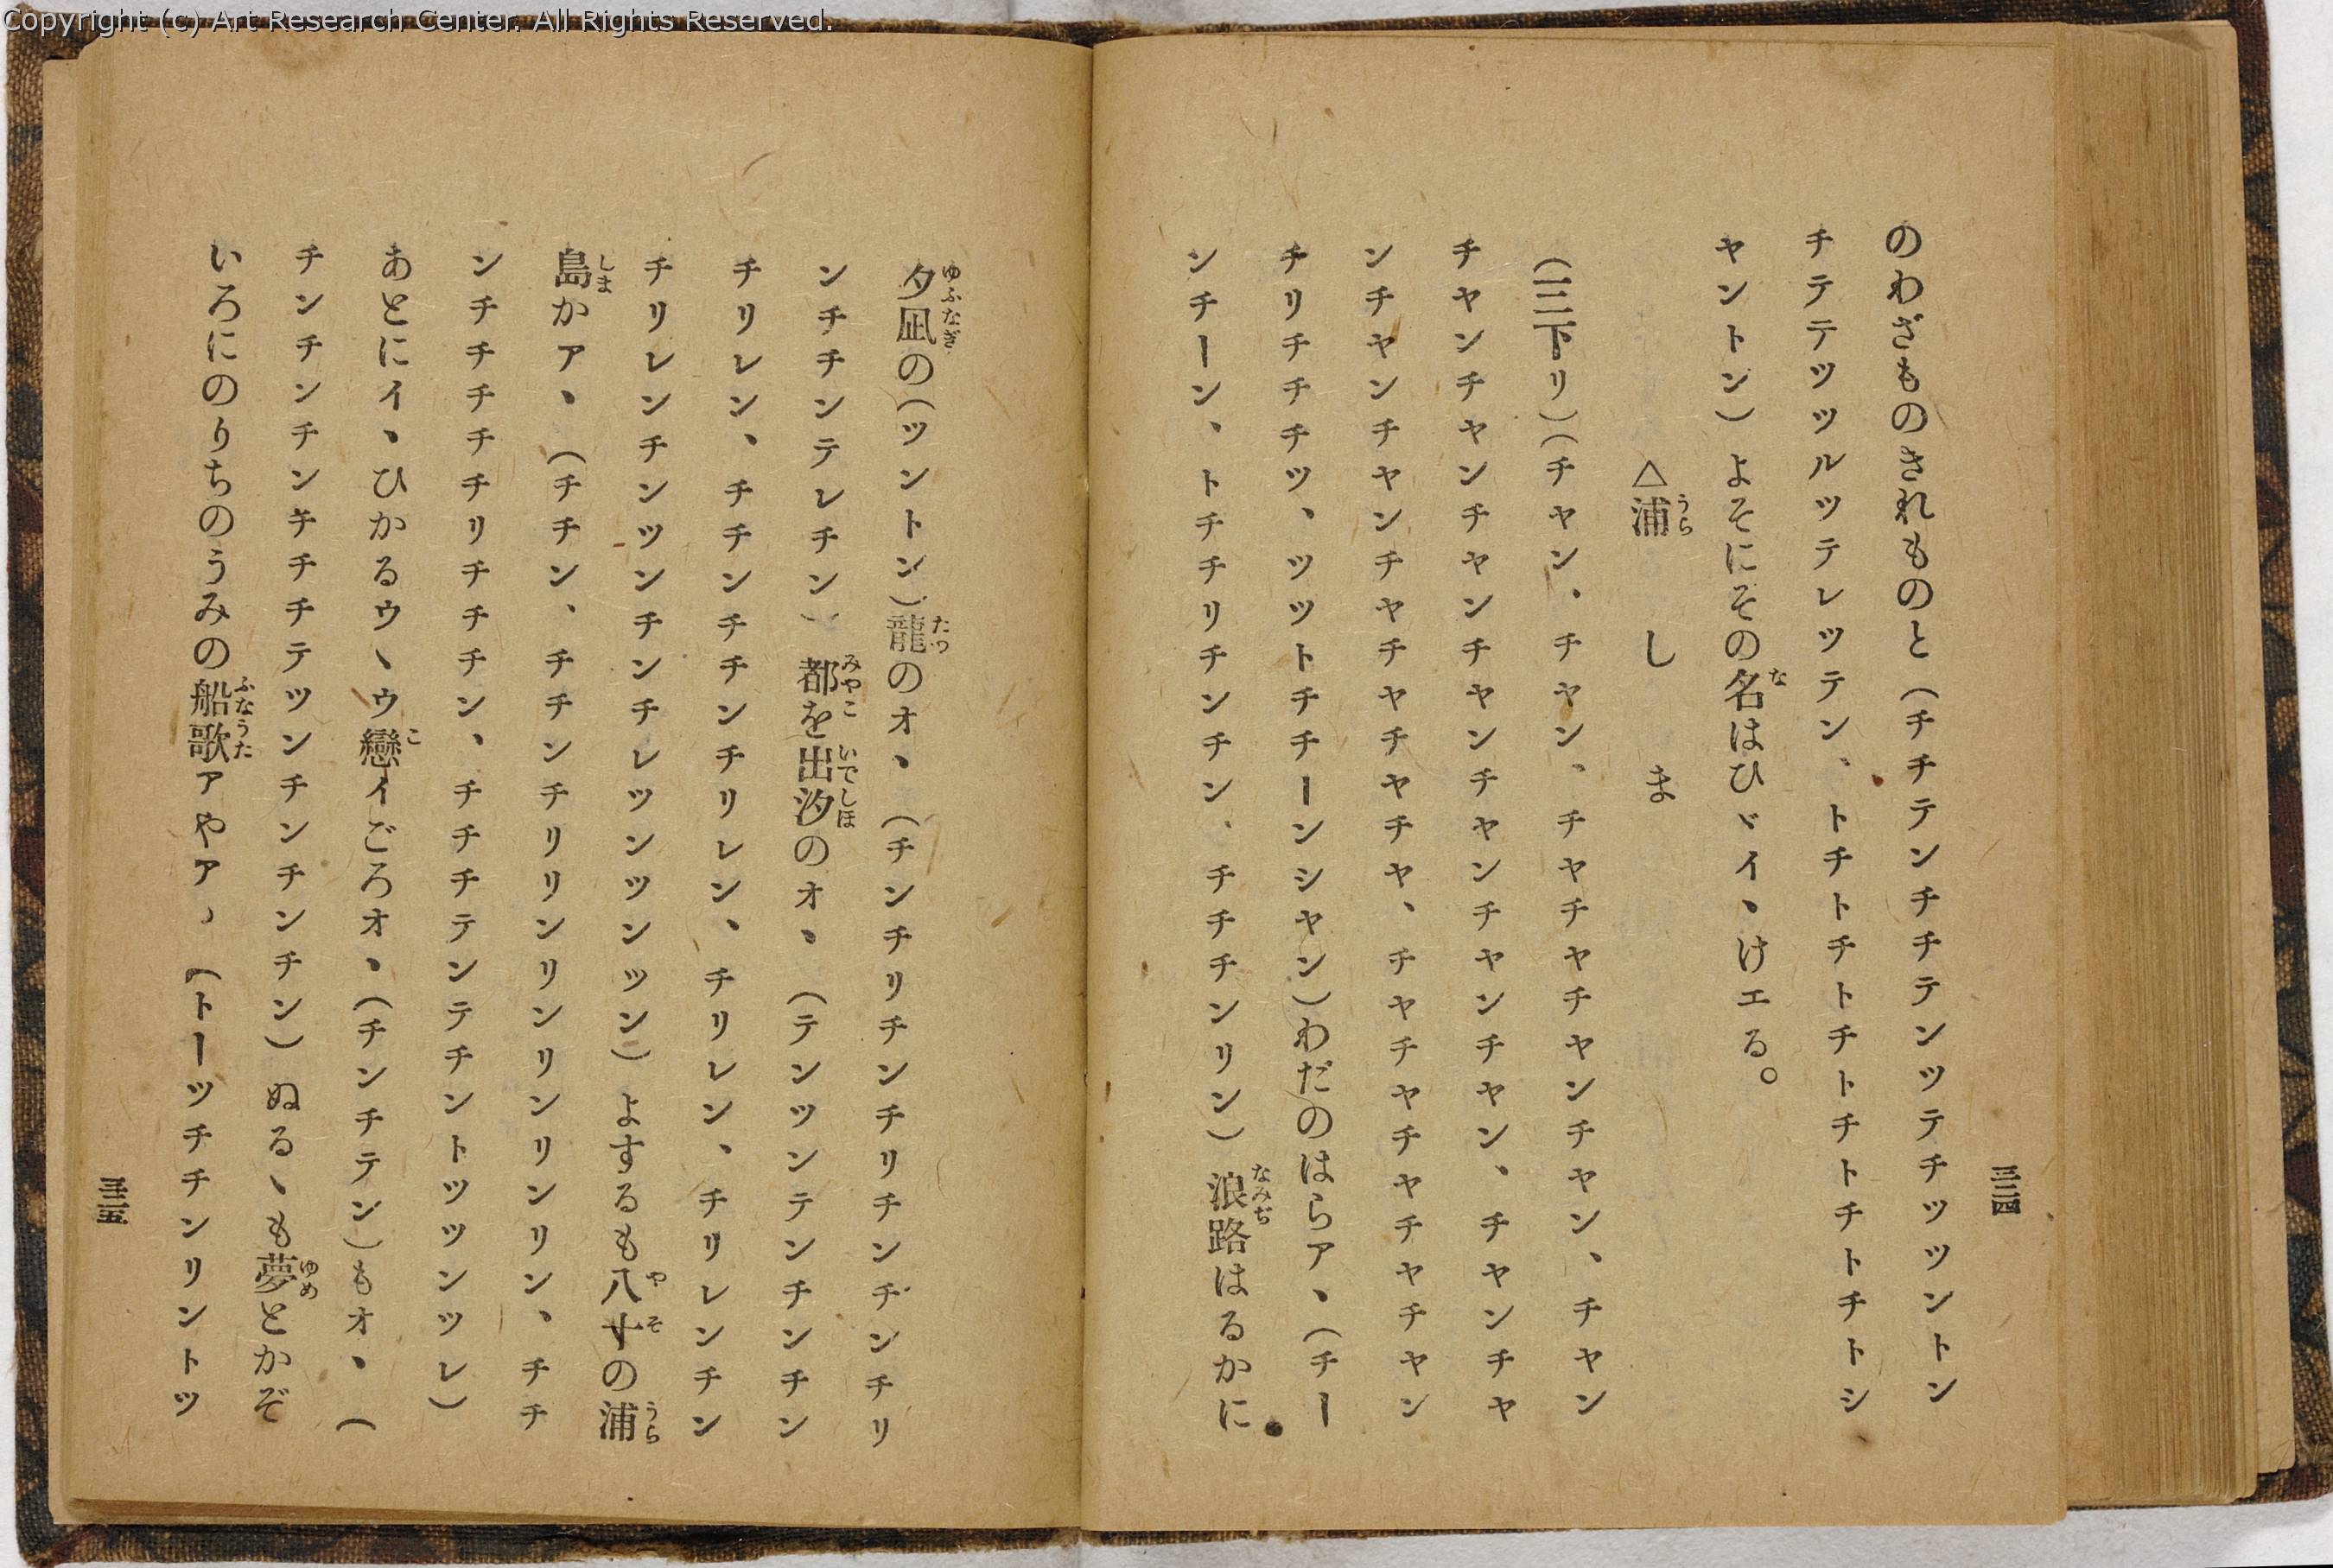 Copyright (c) Art Research Center. All Rights Reserved.
三二四
のわざものきれものと（チチテンチチテンツテチツツントン
チテテツツルツテレツテン、トチトチトチトチトチトチトシ
ヤントン）よそにその名はひヾイヽけエる。
△浦しま
（三下リ）（チヤン、チヤン、チヤチヤチヤンチヤン、チヤン
チヤンチヤンチヤンチヤンチヤンチヤンチヤン、チヤンチヤ
ンチヤンチヤンチヤチヤチヤチヤ、チヤチヤチヤチヤチヤン
チリチチチツ、ツツトチチーンシヤン）わだのはらアヽ（チー
ンチーン、トチチリチンチン、チチチンリン）浪路はるかに
夕凪の（ツントン）龍のオヽ（チンチリチンチリチンチンチリ
ンチチンテレチン）都を出汐のオヽ（テンツンテンチンチン
チリレン、チチンチチンチリレン、チリレン、チリレンチン
チリレンチンツンチンチレツンツンツン）よするも八十の浦
島かアヽ（チチン、チチンチリリンリンリンリンリン、チチ
ンチチチチチリチチチン、チチチテンテチントツツンツレ）
あとにイヽひかるウヽゥ戀ィごろオヽ（チンチテン）もオヽ（
チンチンチンチチテツンチンチンチン）ぬるヽも夢とかぞ
いろにのりちのうみの船歌アやアヽ（トーツチチンリントツ
三二五